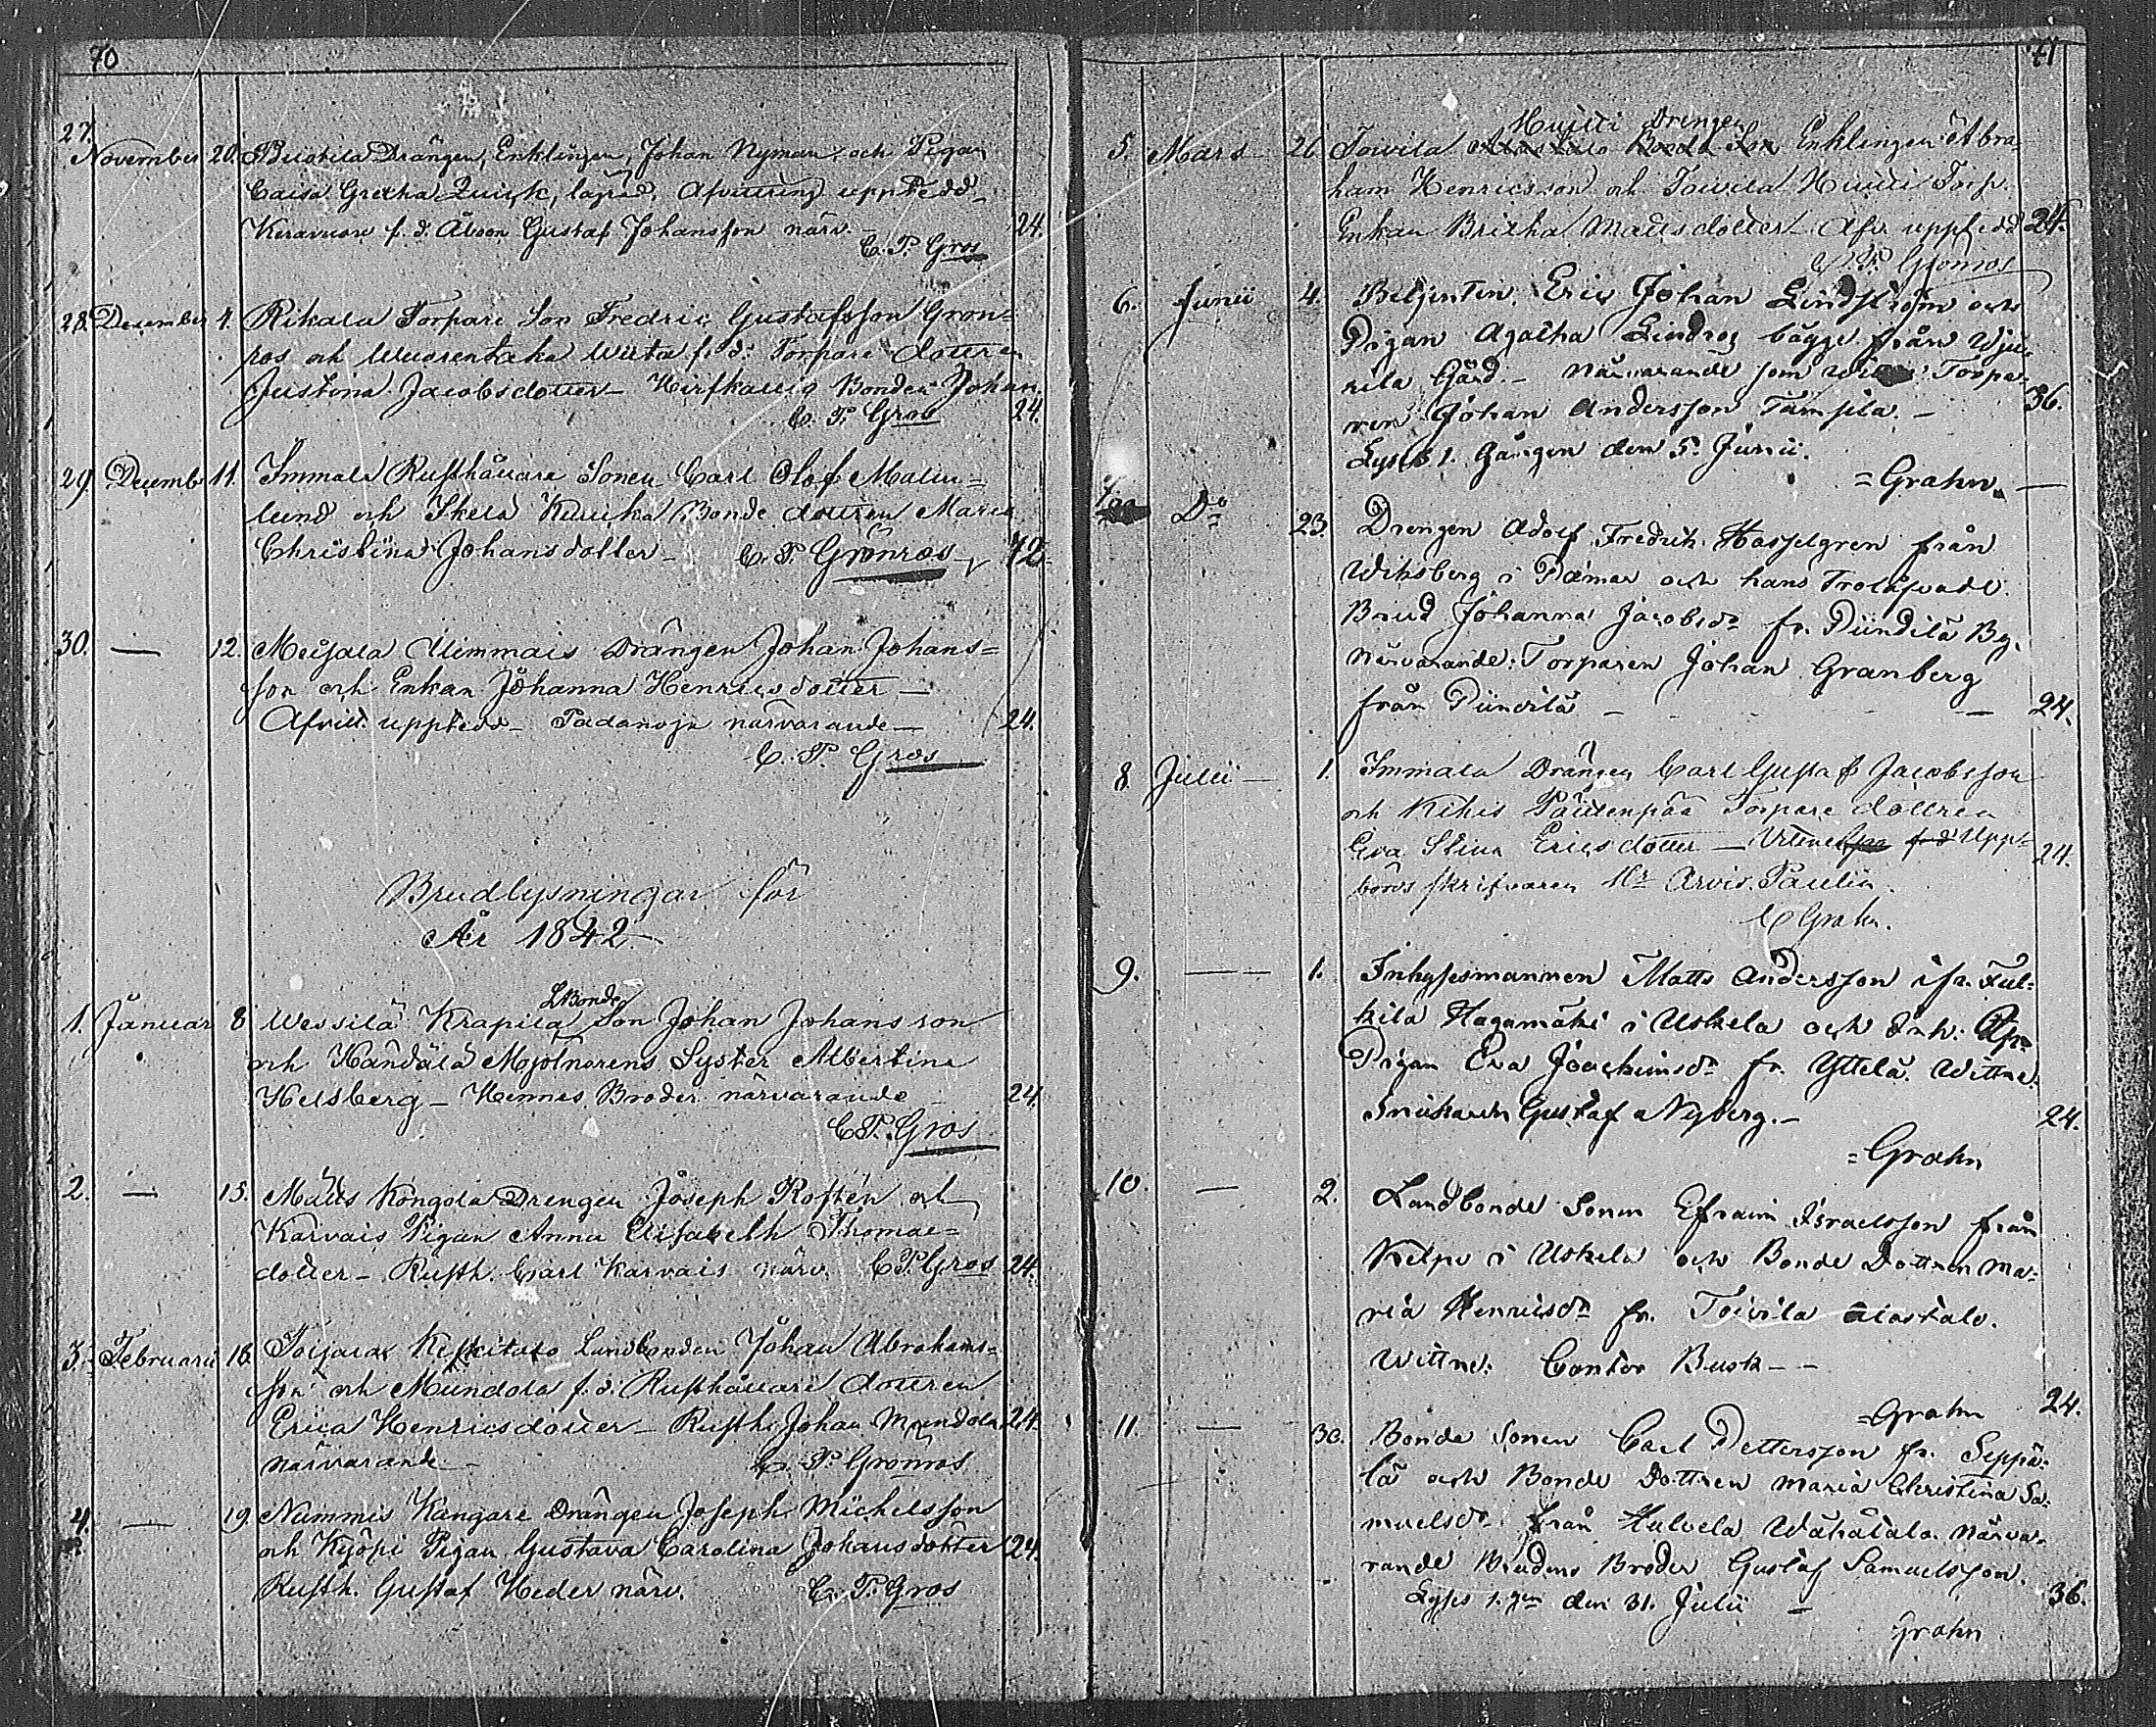 70
27.
November 20. Drängen, Enklingen, Johan Nyman och Pigan
Caisa Gretha Quick, lagvid. Afvittring uppvedd
f. d. Åboen Gustaf Johansson närv. 24.
C. P. Gros
28. December 4. Rikala Torpare Son Fredric Gustafsson Grön-
ros och Wuorentaka Wiita f. d. Torpare dottren
Justina Jacobsdotter - Bonden Johan
C. P. Gros 24.
29. Decemb. 11. Immala Rusthållare Sonen Carl Olof Malm-
lund och Bonde dottren Maria
Christina Johansdotter - C. P. Grönros 72.
30. — 12. Drängen Johan Johans-
son och Enkan Johanna Henricsdotter —
Afvitt. närvarande — 24.
C. P. Gros
Brudlysningar för
År 1842.
LBonde
1. Januar 8 Wessilä Krapila Son Johan Johansson
och Handälä Mjölnarens Syster Albertina
Helsberg - Hennes Broder närvarande 24.
C. P. Gros
2. — 15. Kongola Drengen Joseph och
Karvais Pigan Anna Elisabeth Thomae-
dotter - Rusth. Carl Karvais närv. C. P. Gros 24.
3. Februarii 18. Toijala Keskitalo Landbonden Johan Abrahams-
son och Mundola f. d. Rusthållare dottren
Erica Henricsdotter - Rusth. Johan Mundola 24.
närvarande — C. P. Grönros
4. — 19. Nummis Kangare Drängen Joseph Michelsson
och Pigan Gustava Carolina Johansdotter 24.
Rusth. Gustaf Heder närv. C. P. Gros
71
Huiti Drengen
5. Mars 26 Toivila Enklingen Abra-
ham Henricsson och Toivila Huiti Torp.
Enkan Britha Mattsdotter - Afv. 24.
C. P. Grönros
6. Junii 4. Betjenten Eric Johan Lindström och
Pigan Agatha Lindros bägge från Wiu-
rila Gård. - Närvarande som Torpa-
ren Johan Andersson - 36.
Lyses 1. gången den 5. Junii.
= Grahn —
Do 23. Drengen Adolf Fredrik Hasselgren från
Wiksberg i Pemar och hans Trolofvade
Brud Johanna Jacobsdr fr. By.
närvarande: Torparen Johan Granberg
från — — 24.
8. Julii — 1. Immala Drängen Carl Gustaf Jacobsson
och Kihis Torpare dottren
Eva Stina Ericsdotter — f. d. Upp-
börds skrifvaren Hr Paulin. 24.
Grahn.
9. — 1. Inhysesmannen Matts Andersson ifr.
Hagamäki i Uskela och Inh:
Pigan Eva Joachimsdr fr. Yttelä. Wittne.
Snickaren Gustaf Nyberg. - 24.
= Grahn
10. — 2. Landbonde Sonen Efraim Israelsson från
i Uskela och Bonde Dottren Ma-
ria Henricsdr fr. Toivila Alastalo.
Wittne: Cantor Busk - -
= Grahn 24.
11. — 30. Bonde Sonen Carl Pettersson fr. Seppä-
lä och Bonde Dottren Maria Christina Sa-
muelsdr från närva-
rande Brudens Broder Gustaf Samuelsson.
Lyses 1. gen den 31. Julii — 36.
Grahn